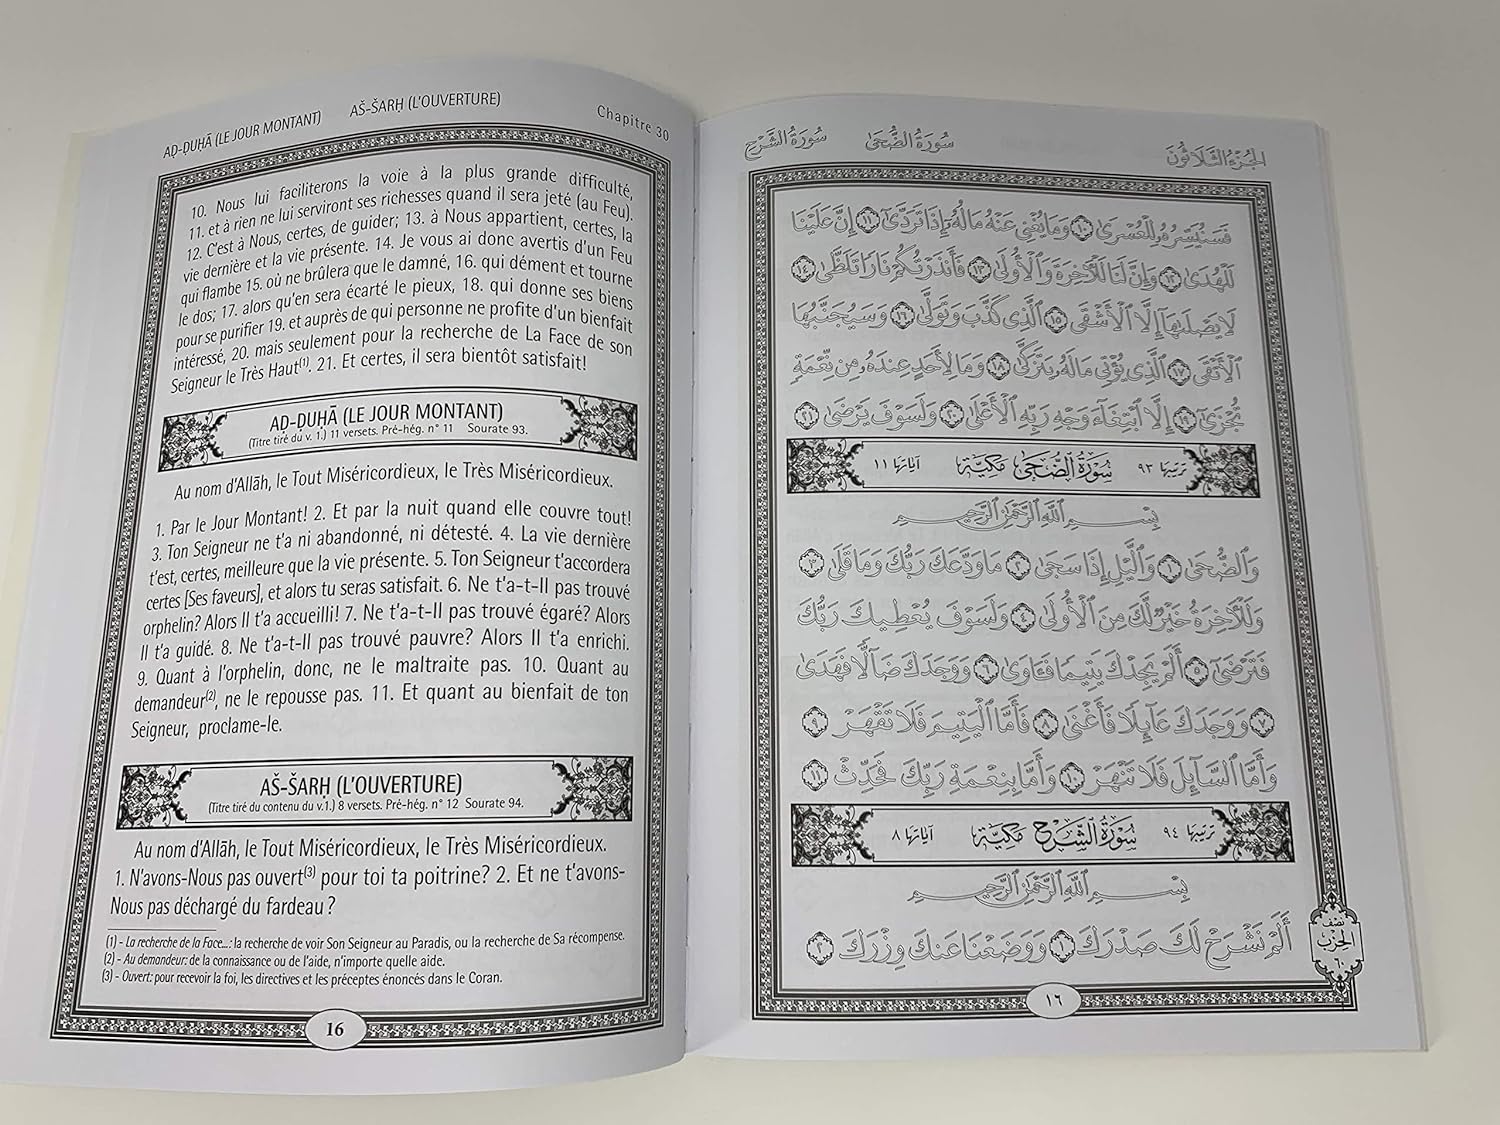 AḌ-ḌUḤĀ (LE JOUR MONTANT) AŠ-ŠARḤ (L'OUVERTURE) Chapitre 30
10. Nous lui faciliterons la voie à la plus grande difficulté,
11. et à rien ne lui serviront ses richesses quand il sera jeté (au Feu).
12. C'est à Nous, certes, de guider; 13. à Nous appartient, certes, la
vie dernière et la vie présente. 14. Je vous ai donc avertis d'un Feu
qui flambe 15. où ne brûlera que le damné, 16. qui dément et tourne
le dos; 17. alors qu'en sera écarté le pieux, 18. qui donne ses biens
pour se purifier 19. et auprès de qui personne ne profite d'un bienfait
intéressé, 20. mais seulement pour la recherche de La Face de son
Seigneur le Très Haut(1). 21. Et certes, il sera bientôt satisfait!
AḌ-ḌUḤĀ (LE JOUR MONTANT)
(Titre tiré du v. 1.) 11 versets. Pré-hég. n° 11 Sourate 93.
Au nom d'Allāh, le Tout Miséricordieux, le Très Miséricordieux.
1. Par le Jour Montant! 2. Et par la nuit quand elle couvre tout!
3. Ton Seigneur ne t'a ni abandonné, ni détesté. 4. La vie dernière
t'est, certes, meilleure que la vie présente. 5. Ton Seigneur t'accordera
certes [Ses faveurs], et alors tu seras satisfait. 6. Ne t'a-t-Il pas trouvé
orphelin? Alors Il t'a accueilli! 7. Ne t'a-t-Il pas trouvé égaré? Alors
Il t'a guidé. 8. Ne t'a-t-Il pas trouvé pauvre? Alors Il t'a enrichi.
9. Quant à l'orphelin, donc, ne le maltraite pas. 10. Quant au
demandeur(2), ne le repousse pas. 11. Et quant au bienfait de ton
Seigneur, proclame-le.
AŠ-ŠARḤ (L'OUVERTURE)
(Titre tiré du contenu du v.1.) 8 versets. Pré-hég. n° 12 Sourate 94.
Au nom d'Allāh, le Tout Miséricordieux, le Très Miséricordieux.
1. N'avons-Nous pas ouvert(3) pour toi ta poitrine? 2. Et ne t'avons-
Nous pas déchargé du fardeau ?
(1) - La recherche de la Face...: la recherche de voir Son Seigneur au Paradis, ou la recherche de Sa récompense.
(2) - Au demandeur: de la connaissance ou de l'aide, n'importe quelle aide.
(3) - Ouvert: pour recevoir la foi, les directives et les préceptes énoncés dans le Coran.
16
الجُزْءُ الثَّلَاثُونَ سُورَةُ الضُّحَىٰ سُورَةُ الشَّرْحِ
فَسَنُيَسِّرُهُۥ لِلْعُسْرَىٰ ١٠ وَمَا يُغْنِى عَنْهُ مَالُهُۥٓ إِذَا تَرَدَّىٰٓ ١١ إِنَّ عَلَيْنَا
لَلْهُدَىٰ ١٢ وَإِنَّ لَنَا لَلْـَٔاخِرَةَ وَٱلْأُولَىٰ ١٣ فَأَنذَرْتُكُمْ نَارًا تَلَظَّىٰ ١٤
لَا يَصْلَىٰهَآ إِلَّا ٱلْأَشْقَى ١٥ ٱلَّذِى كَذَّبَ وَتَوَلَّىٰ ١٦ وَسَيُجَنَّبُهَا
ٱلْأَتْقَى ١٧ ٱلَّذِى يُؤْتِى مَالَهُۥ يَتَزَكَّىٰ ١٨ وَمَا لِأَحَدٍ عِندَهُۥ مِن نِّعْمَةٍ
تُجْزَىٰٓ ١٩ إِلَّا ٱبْتِغَآءَ وَجْهِ رَبِّهِ ٱلْأَعْلَىٰ ٢٠ وَلَسَوْفَ يَرْضَىٰ ٢١
ترتيبها ٩٣ سُورَةُ الضُّحَىٰ مَكِّيَّة آياتها ١١
بِسْمِ ٱللَّهِ ٱلرَّحْمَٰنِ ٱلرَّحِيمِ
وَٱلضُّحَىٰ ١ وَٱلَّيْلِ إِذَا سَجَىٰ ٢ مَا وَدَّعَكَ رَبُّكَ وَمَا قَلَىٰ ٣
وَلَلْـَٔاخِرَةُ خَيْرٌ لَّكَ مِنَ ٱلْأُولَىٰ ٤ وَلَسَوْفَ يُعْطِيكَ رَبُّكَ
فَتَرْضَىٰٓ ٥ أَلَمْ يَجِدْكَ يَتِيمًا فَـَٔاوَىٰ ٦ وَوَجَدَكَ ضَآلًّا فَهَدَىٰ
٧ وَوَجَدَكَ عَآئِلًا فَأَغْنَىٰ ٨ فَأَمَّا ٱلْيَتِيمَ فَلَا تَقْهَرْ ٩
وَأَمَّا ٱلسَّآئِلَ فَلَا تَنْهَرْ ١٠ وَأَمَّا بِنِعْمَةِ رَبِّكَ فَحَدِّثْ ١١
ترتيبها ٩٤ سُورَةُ الشَّرْحِ مَكِّيَّة آياتها ٨
بِسْمِ ٱللَّهِ ٱلرَّحْمَٰنِ ٱلرَّحِيمِ
أَلَمْ نَشْرَحْ لَكَ صَدْرَكَ ١ وَوَضَعْنَا عَنكَ وِزْرَكَ ٢
نصف
الحزب
٦٠
١٦